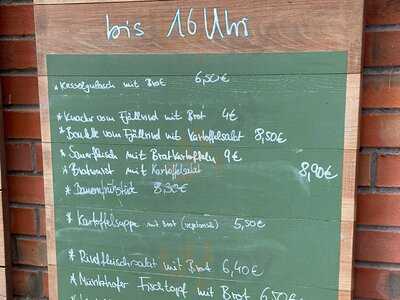 bis 16 Uhr
* Kesselgulasch mit Brot 6,50€
* Knacker vom Fjällrind mit Brot 4€
* Boulette vom Fjällrind mit Kartoffelsalat 8,50€
* Sauerfleisch mit Bratkartoffeln 9€
* Bratwurst mit Kartoffelsalat 8,90€
* Bauernfrühstück 8,50€
* Kartoffelsuppe mit Brot (vegetarisch) 5,50€
* Rindfleischsalat mit Brot 6,40€
* Fischtopf mit Brot 6,50€